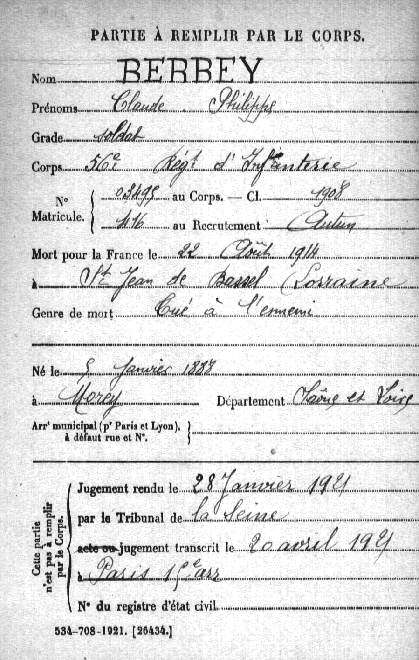 PARTIE À REMPLIR PAR LE CORPS.
Nom BERBEY
Prénoms Claude Philippe
Grade soldat
Corps 56e Régt d'Infanterie
N° Matricule. { 03495 au Corps. — Cl. 1908
416 au Recrutement Autun
Mort pour la France le 22 Août 1914
à St Jean de Bassel (Lorraine
Genre de mort Tué à l'ennemi
Né le 5 Janvier 1888
à Morey Département Saône et Loire
Arrt municipal (pr Paris et Lyon), à défaut rue et N°.
Cette partie n'est pas à remplir par le Corps.
Jugement rendu le 28 Janvier 1921
par le Tribunal de la Seine
acte ou jugement transcrit le 20 avril 1921
à Paris 15e arr
N° du registre d'état civil
534-708-1921. [26434.]